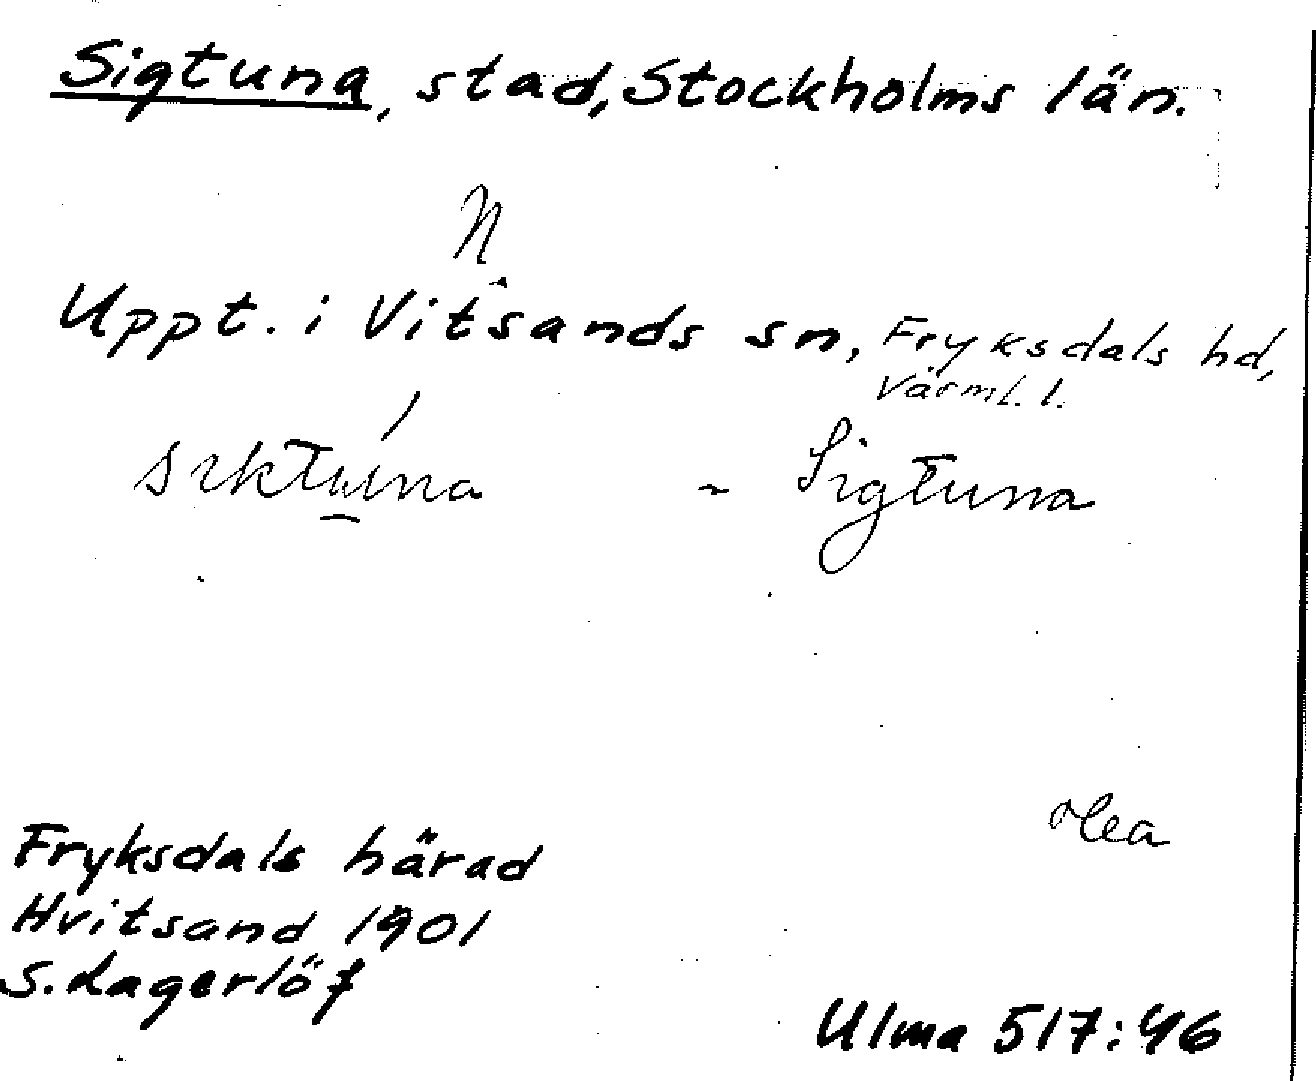 Sigtuna, stad, Stockholms län.
N
Uppt. i Vitsands sn, Fryksdals hd,
Värml. l.
sıktuna - Sigtuna
Fryksdals härad
Hvitsand 1901
S. Lagerlöf
Ulma 517:46